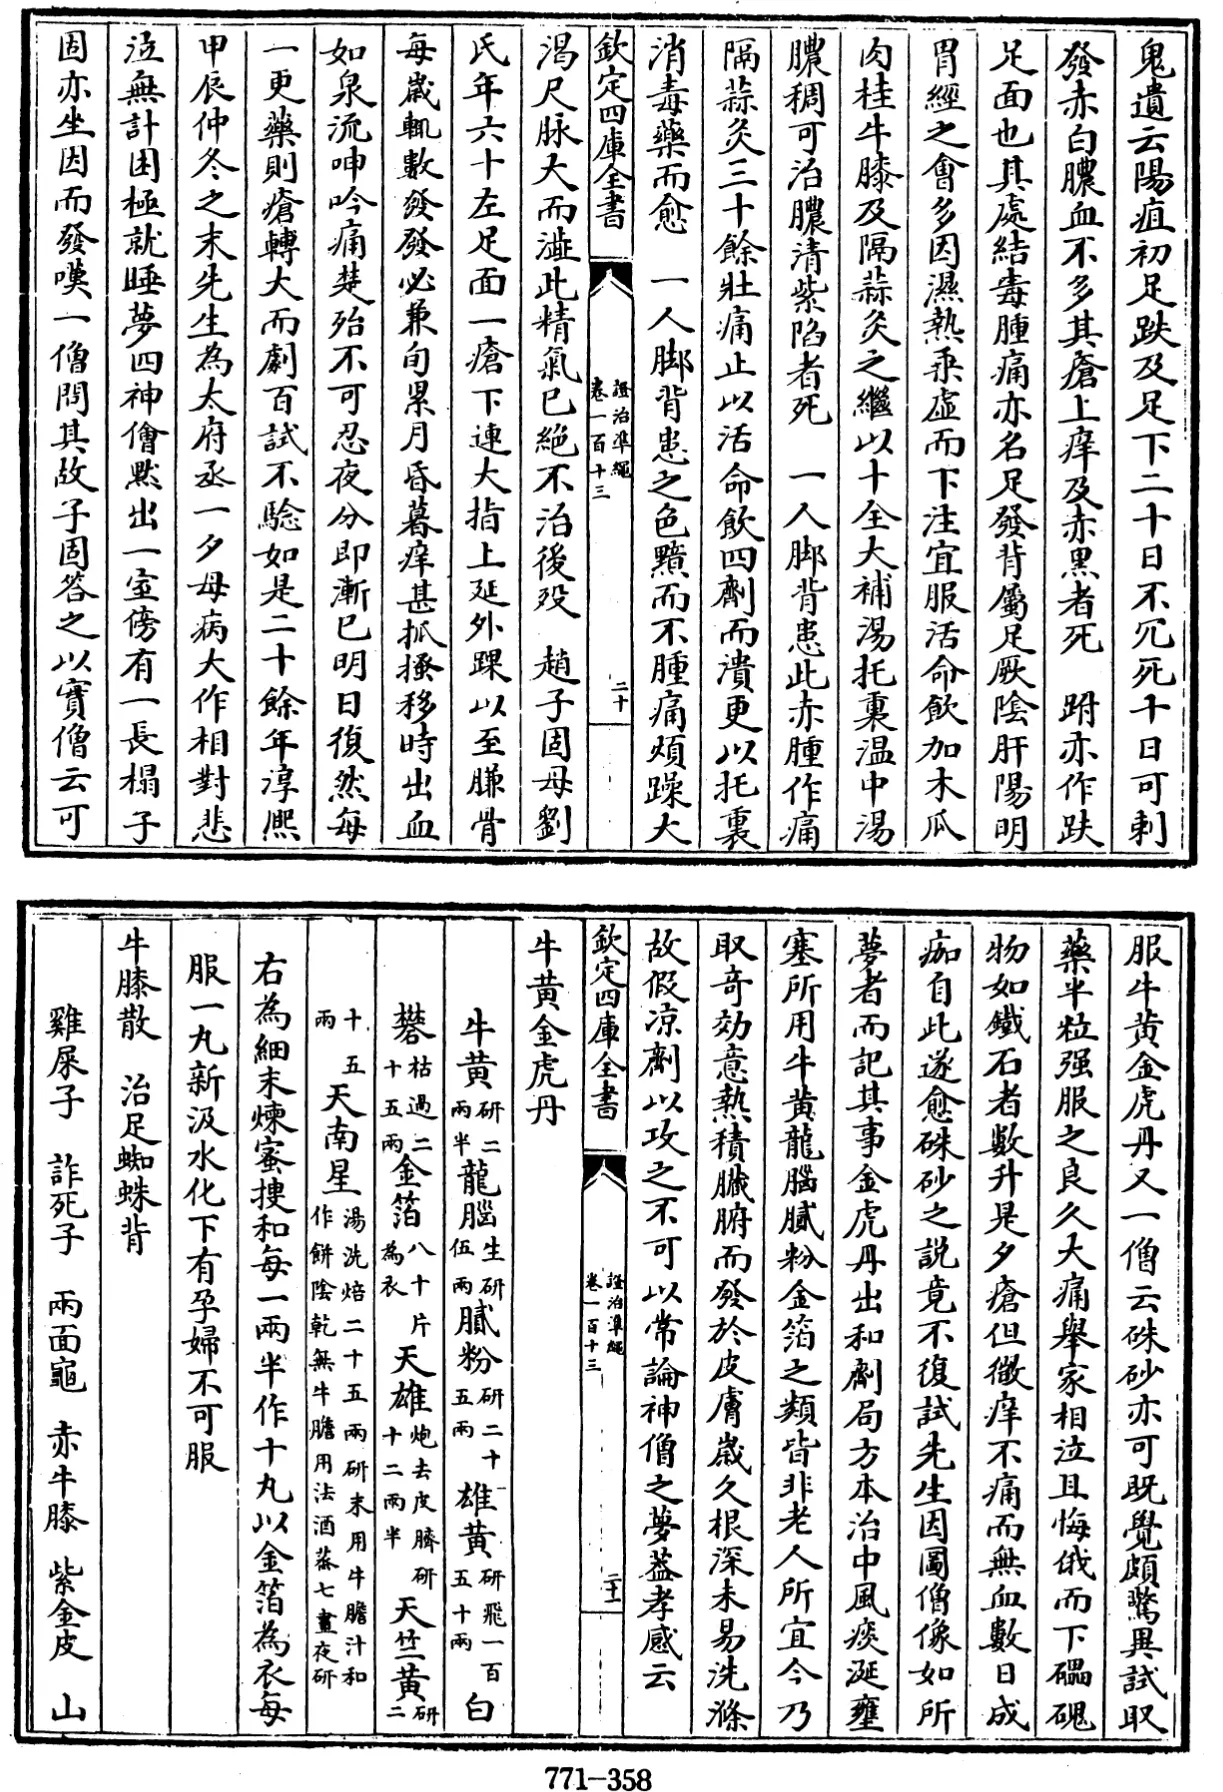 鬼遺云陽疽初足趺及足下二十日不冗死十日可刺
發赤白膿血不多其瘡上痒及赤黒者死　跗亦作趺
足面也其處結毒腫痛亦名足發背屬足厥陰肝陽明
胃經之會多因濕熱乘虚而下注宜服活命飲加木瓜
肉桂牛膝及隔蒜灸之繼以十全大補湯托裏温中湯
膿稠可治膿清紫陷者死　一人脚背患此赤腫作痛
隔蒜灸三十餘壯痛止以活命飲四劑而潰更以托裏
消毒藥而愈　一人脚背患之色黯而不腫痛煩躁大
欽定四庫全書
證治準繩
卷一百十三
二十
渴尺脉大而澁此精氣已絶不治後殁　趙子固母劉
氏年六十左足面一瘡下連大指上延外踝以至臁骨
每歲輒數發發必兼旬累月昏暮痒甚抓搔移時出血
如泉流呻吟痛楚殆不可忍夜分即漸已明日復然每
一更藥則瘡轉大而劇百試不驗如是二十餘年淳熈
甲辰仲冬之末先生為太府丞一夕母病大作相對悲
泣無計困極就睡夢四神僧黙坐一室傍有一長榻子
固亦坐因而發嘆一僧問其故子固答之以實僧云可
服牛黄金虎丹又一僧云硃砂亦可既覺頗驚異試取
藥半粒强服之良久大痛舉家相泣且悔俄而下礧磈
物如鐵石者數升是夕瘡但微痒不痛而無血數日成
痂自此遂愈硃砂之説竟不復試先生因圖僧像如所
夢者而記其事金虎丹出和劑局方本治中風痰涎壅
塞所用牛黄龍腦膩粉金箔之類皆非老人所宜今乃
取奇効意熱積臟腑而發於皮膚歲久根深未易洗滌
故假凉劑以攻之不可以常論神僧之夢葢孝感云
欽定四庫全書
證治準繩
卷一百十三
二十一
牛黄金虎丹
牛黄研二兩半龍腦生研伍兩膩粉研二十五兩雄黄研飛一百五十兩白
礬枯過二十五兩金箔八十片為衣天雄炮去皮臍研十二兩半天竺黄研二
十五兩天南星湯洗焙二十五兩研末用牛膽汁和作餅陰乾無牛膽用法酒蒸七晝夜研
右為細末煉蜜搜和每一兩半作十丸以金箔為衣每
服一丸新汲水化下有孕婦不可服
牛膝散　治足蜘蛛背
雞屎子　詐死子　兩面龜　赤牛膝　紫金皮　山
771-358